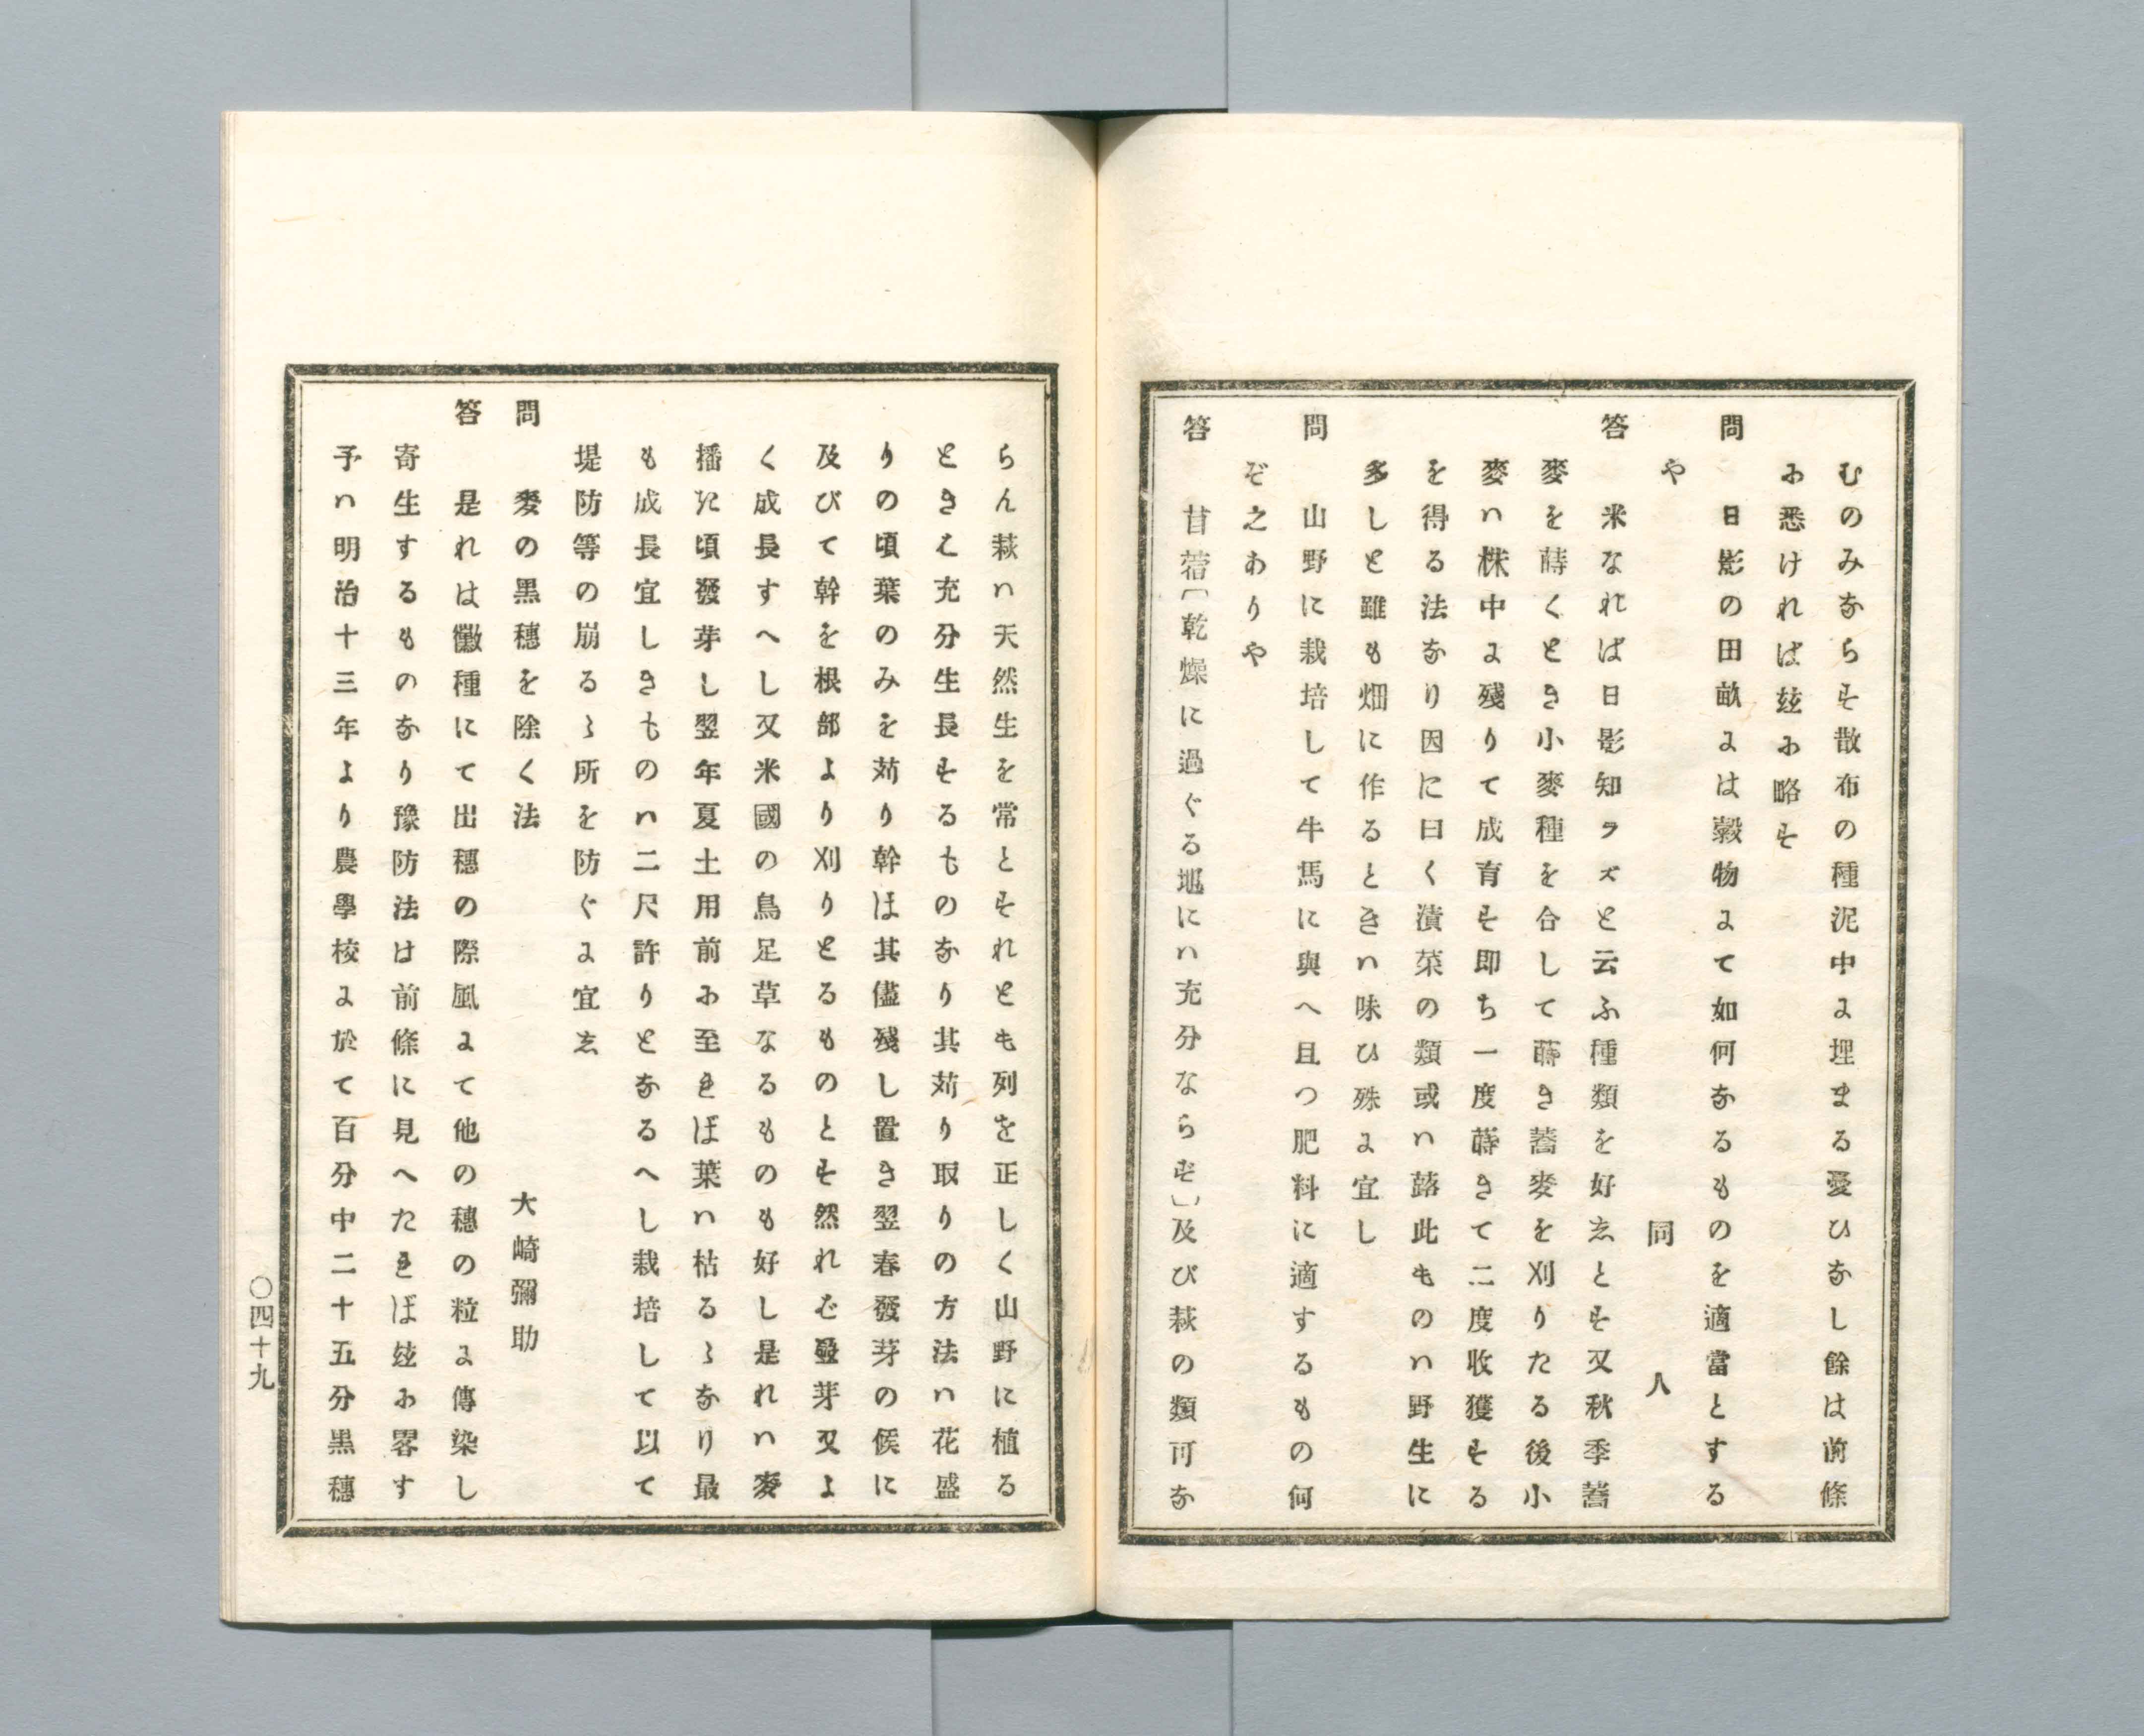 むのみならす散布の種泥中に埋まる憂ひなし餘は前條
に悉けれは玆に略す
問　日影の田畝には穀物にて如何なるものを適當とする
や　同　人
答　米なれば日影知ラズと云ふ種類を好しとす又秋季蕎
麥を蒔くとき小麥種を合して蒔き蕎麥を刈りたる後小
麥ハ株中に殘りて成育す即ち一度蒔きて二度收獲する
を得る法なり因に曰く漬菜の類或ハ蕗此ものハ野生に
多しと雖も畑に作るときハ味ひ殊に宜し
問　山野に栽培して牛馬に與へ且つ肥料に適するもの何
ぞ之ありや
答　苜蓿〔乾燥に過ぐる地にハ充分ならず〕及び萩の類可な
らん萩ハ天然生を常とすれとも列を正しく山野に植る
ときハ充分生長するものなり其苅り取りの方法ハ花盛
りの頃葉のみを苅り幹ほ其儘殘し置き翌春發芽の候に
及びて幹を根部より刈りとるものとす然れど發芽又よ
く成長すへし又米國の鳥足草なるものも好し是れハ麥
播た頃發芽し翌年夏土用前に至れば葉ハ枯るゝなり最
も成長宜しきものハ二尺許りとなるへし栽培して以て
堤防等の崩るゝ所を防ぐに宜し
問　麥の黒穗を除く法　大崎彌助
答　是れは黴種にて出穗の際風にて他の穗の粒に傳染し
寄生するものなり豫防法は前條に見へたれば玆に畧す
予ハ明治十三年より農學校に於て百分中二十五分黒穗
〇四十九